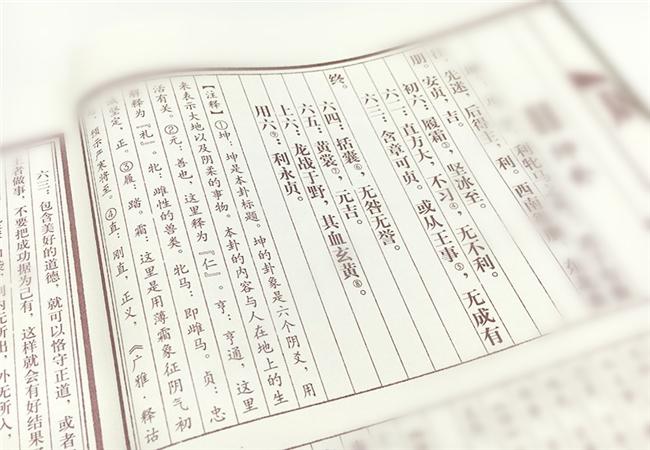 利牝马
先迷，后得主，利。西南
朋。安贞，吉。
初六：履霜③，坚冰至。
六二：直方大，不习④，无不利。
六三：含章可贞。或从王事⑤，无成有
终。
六四：括囊⑥，无咎无誉。
六五：黄裳⑦，元吉。
上六：龙战于野，其血玄黄⑧。
用六⑨：利永贞。
【注释】①坤：坤是本卦标题。坤的卦象是六个阴爻，用
来表示大地以及阴柔的事物。本卦的内容与人在地上的生
活有关。②元：善也，这里释为『仁』。亨：亨通，这里
解释为『礼』。牝：雌性的兽类。牝马：即雌马。贞：忠
诚坚定，正。③履：踏。霜：这里是用薄霜象征阴气初
预示严寒将至。④直：刚直，正义，《广雅·释诂
六三：包含美好的道德，就可以恪守正道，或者
王者做事，不要把成功据为己有，这样就会有好结果
内无所出，外无所入，